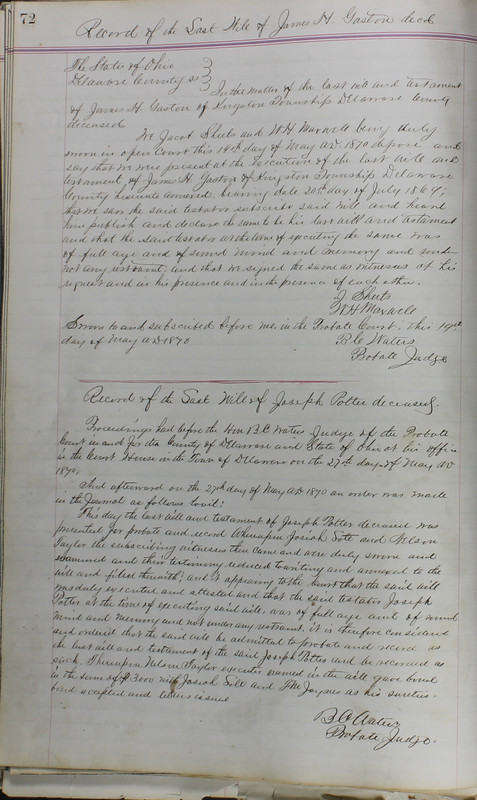 72
Record of the Last Will of James H. Gaston decd
The State of Ohio
Delaware County ss
In the matter of the last will and testament
of James H. Gaston of Kingston Township Delaware County
deceased
We Jacob Sheets and W H Maxwell being duly
sworn in open Court this 19th day of May AD 1870 depose and
say that we were present at the execution of the last will and
testament of James H. Gaston of Kingston Township Delaware
County hereunto annexed bearing date 20th day of July 1867,
that we saw the said testator subscribe said will and heard
him publish and declare the same to be his last will and testament
and that the said testator at the time of executing the same was
of full age and of sound mind and memory and under
not any restraint, and that we signed the same as witnesses at his
request and in his presence and in the presence of each other.
J Sheets
W H Maxwell
Sworn to and subscribed before me, in the Probate Court, this 19th
day of May AD 1870
B. C. Waters
Probate Judge
Record of the Last Will of Joseph Potter deceased.
Proceedings had before the Hon B. C. Waters Judge of the Probate
Court in and for the County of Delaware and State of Ohio at his office
in the Court House in the Town of Delaware on the 27th day of May AD
1870.
And afterward on the 27th day of May AD 1870 an order was made
in the Journal as follows to wit:
This day the last will and testament of Joseph Potter deceased was
presented for probate and record Whereupon Josiah and Nelson
Taylor the subscribing witnesses then came and were duly sworn and
examined and their testimony reduced to writing and annexed to the
will and filed therewith, and it appearing to the Court that the said will
was duly executed and attested and that the said testator Joseph
Potter at the time of executing said will, was of full age and of sound
mind and memory and not under any restraint, it is therefore considered
and ordered that the said will be admitted to probate and record as
the last will and testament of the said Joseph Potter and be recorded as
such. Thereupon Nelson Taylor executor named in the will gave bond
in the sum of $3000 with Josiah and Jaynes as his sureties.
bond accepted and letters issued
B. C. Waters
Probate Judge.